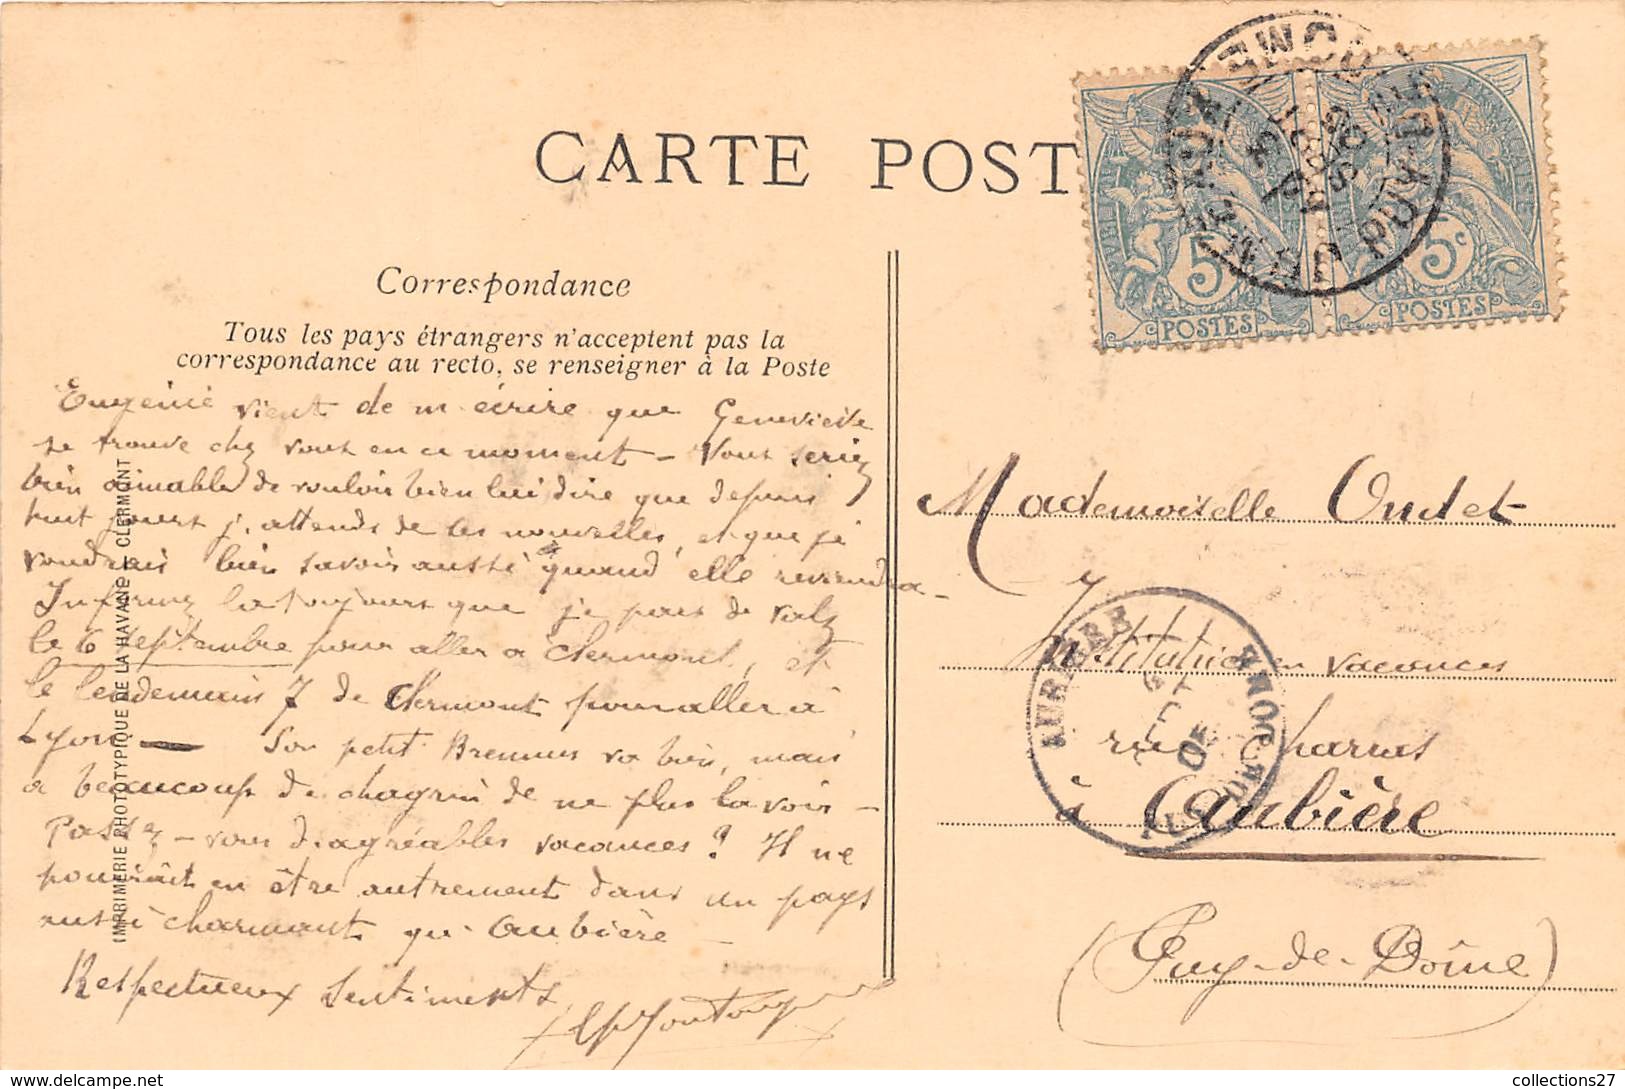 CARTE POST
Correspondance
Tous les pays étrangers n'acceptent pas la
correspondance au recto, se renseigner à la Poste
Eugénie vient de m'écrire que Geneviève
se trouve chez vous en ce moment – Vous seriez
bien aimable de vouloir bien lui dire que depuis
huit jours j'attends de ses nouvelles, et que je
voudrais bien savoir aussi quand elle reviendra –
Informez la toujours que je pars de Valz
le 6 Septembre pour aller à Clermont, et
le lendemain 7 de Clermont pour aller à
Lyon — Son petit Brennus va bien, mais
a beaucoup de chagrin de ne plus la voir –
Passez-vous d'agréables vacances ? Il ne
pourrait en être autrement dans un pays
aussi charmant qu'Aubière –
Respectueux Sentiments
IMPRIMERIE PHOTOTYPIQUE DE LA HAVANE – CLERMONT
5 5c
POSTES POSTES
PUY DE DOME
Mademoiselle Oudet
Institutrice en vacances
rue Charras
à Aubière
(Puy-de-Dôme)
AUBIERE
PUY-DE-DOME
05
collections27